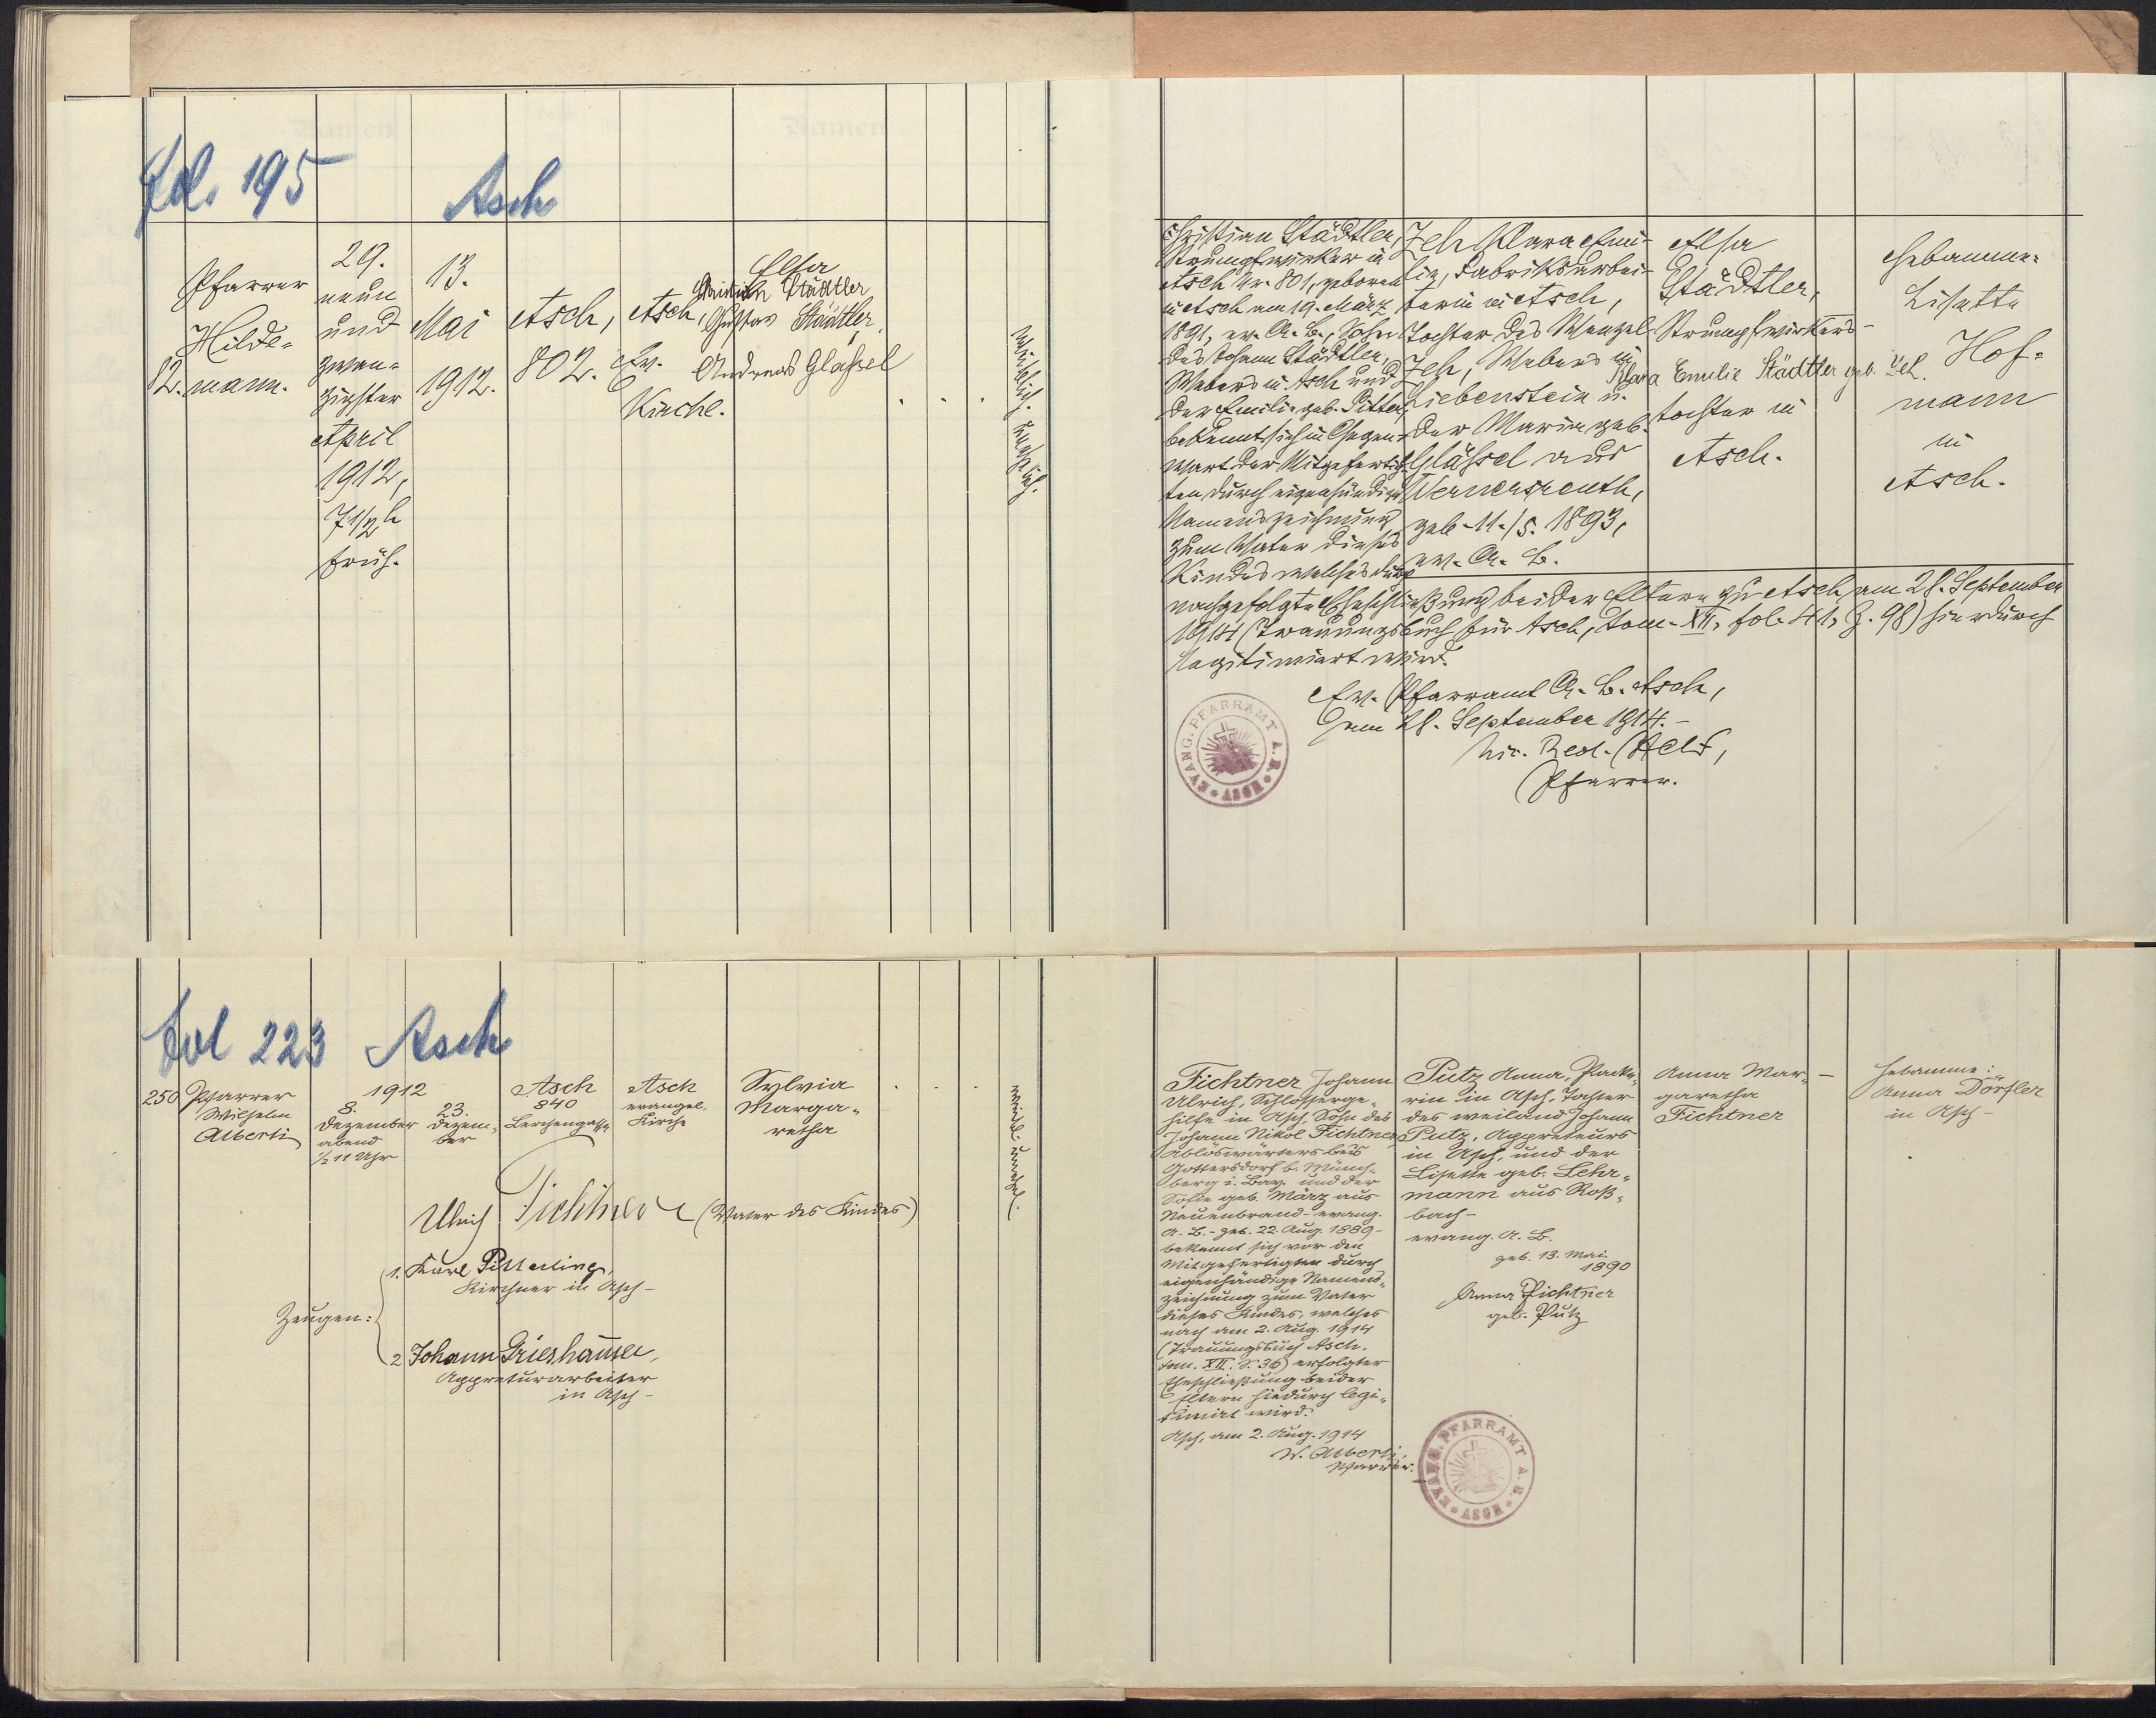 Fol. 195 Asch
82.
Pfarrer
Hilde-
mann.
29.
neun
und
zwan-
zigster
April
1912,
7 1/2 h
früh.
13.
Mai
1912.
Asch,
802.
Asch,
Ev.
Kirche.
Elsa
Christian Städtler
Gustav Städtler.
Andreas Glaßel
. . .
weiblich. unehel.
Christian Städtler,
Strumpfwirker in
Asch Nr. 801, geboren
in Asch am 19. März
1891, ev. A. B., Sohn
des Johann Städtler,
Webers in Asch und
der Emilie geb.
bekennt sich in Gegen-
wart der Mitgefertig-
ten durch eigenhändige
Namenszeichnung
zum Vater dieses
Kindes welches durch
Zeh Klara Emi-
lie, Fabriksarbei-
terin in Asch,
Tochter des Wenzel
Zeh, Webers in
Liebenstein u.
der Maria geb.
Gläßel aus
Wernersreuth,
geb. 11./5. 1893,
ev. A. B.
Elsa
Städtler,
Strumpfwirkers-
Klara Emilie Städtler geb. Zeh.
tochter in
Asch.
Hebamme:
Lisette
Hof-
mann
in
Asch.
nachgefolgte Eheschließung beider Eltern zu Asch am 28. September
1914 (Trauungsbuch für Asch, tom. XII, fol. 41, Z. 98) hierdurch
legitimiert wird.
Ev. Pfarramt A. B. Asch,
am 28. September 1914.-
Held,
Pfarrer.
EVANG. PFARRAMT A. B. ASCH
Fol 223 Asch
250
Pfarrer
Wilhelm
Alberti
1912
8.
Dezember
abend
1/2 11 Uhr
23.
Dezem-
ber
Asch
840
Lerchengasse
Asch
evangel.
Kirche
Sylvia
Marga-
retha
. . .
weibl. unehel.
Ulrich Fichtner (Vater des Kindes)
Zeugen:
1. Karl Pitterling,
Kirchner in Asch -
2 Johann Grieshammer,
Appreturarbeiter
in Asch -
Fichtner Johann
Ulrich, Schlosserge-
hilfe in Asch, Sohn des
Johann Nikol Fichtner,
Ablöswärters beis
Gottersdorf b. Münch-
berg i. Bay. und der
Sofie geb. März aus
Neuenbrand - evang.
A. B. - geb. 22. Aug. 1889 -
bekennt sich vor den
Mitgefertigten durch
eigenhändige Namens-
zeichnung zum Vater
dieses Kindes, welches
nach am 2. Aug. 1914
(Trauungsbuch Asch.
tom. XII. S. 36) erfolgter
Eheschließung beider
Eltern hiedurch legi-
timirt wird.
Asch, am 2. Aug. 1914
W. Alberti,
Pfarrer.
Putz Anna, Packe-
rin in Asch, Tochter
des weiland Johann
Putz, Appreteurs
in Asch, und der
Lisette geb. Lehr-
mann aus Roß-
bach -
evang. A. B.
geb. 13. Mai
1890
Anna Fichtner
geb. Putz
EVANG. PFARRAMT A. B. ASCH
Anna Mar-
garetha
Fichtner
-
Hebamme:
Anna Dörfler
in Asch -